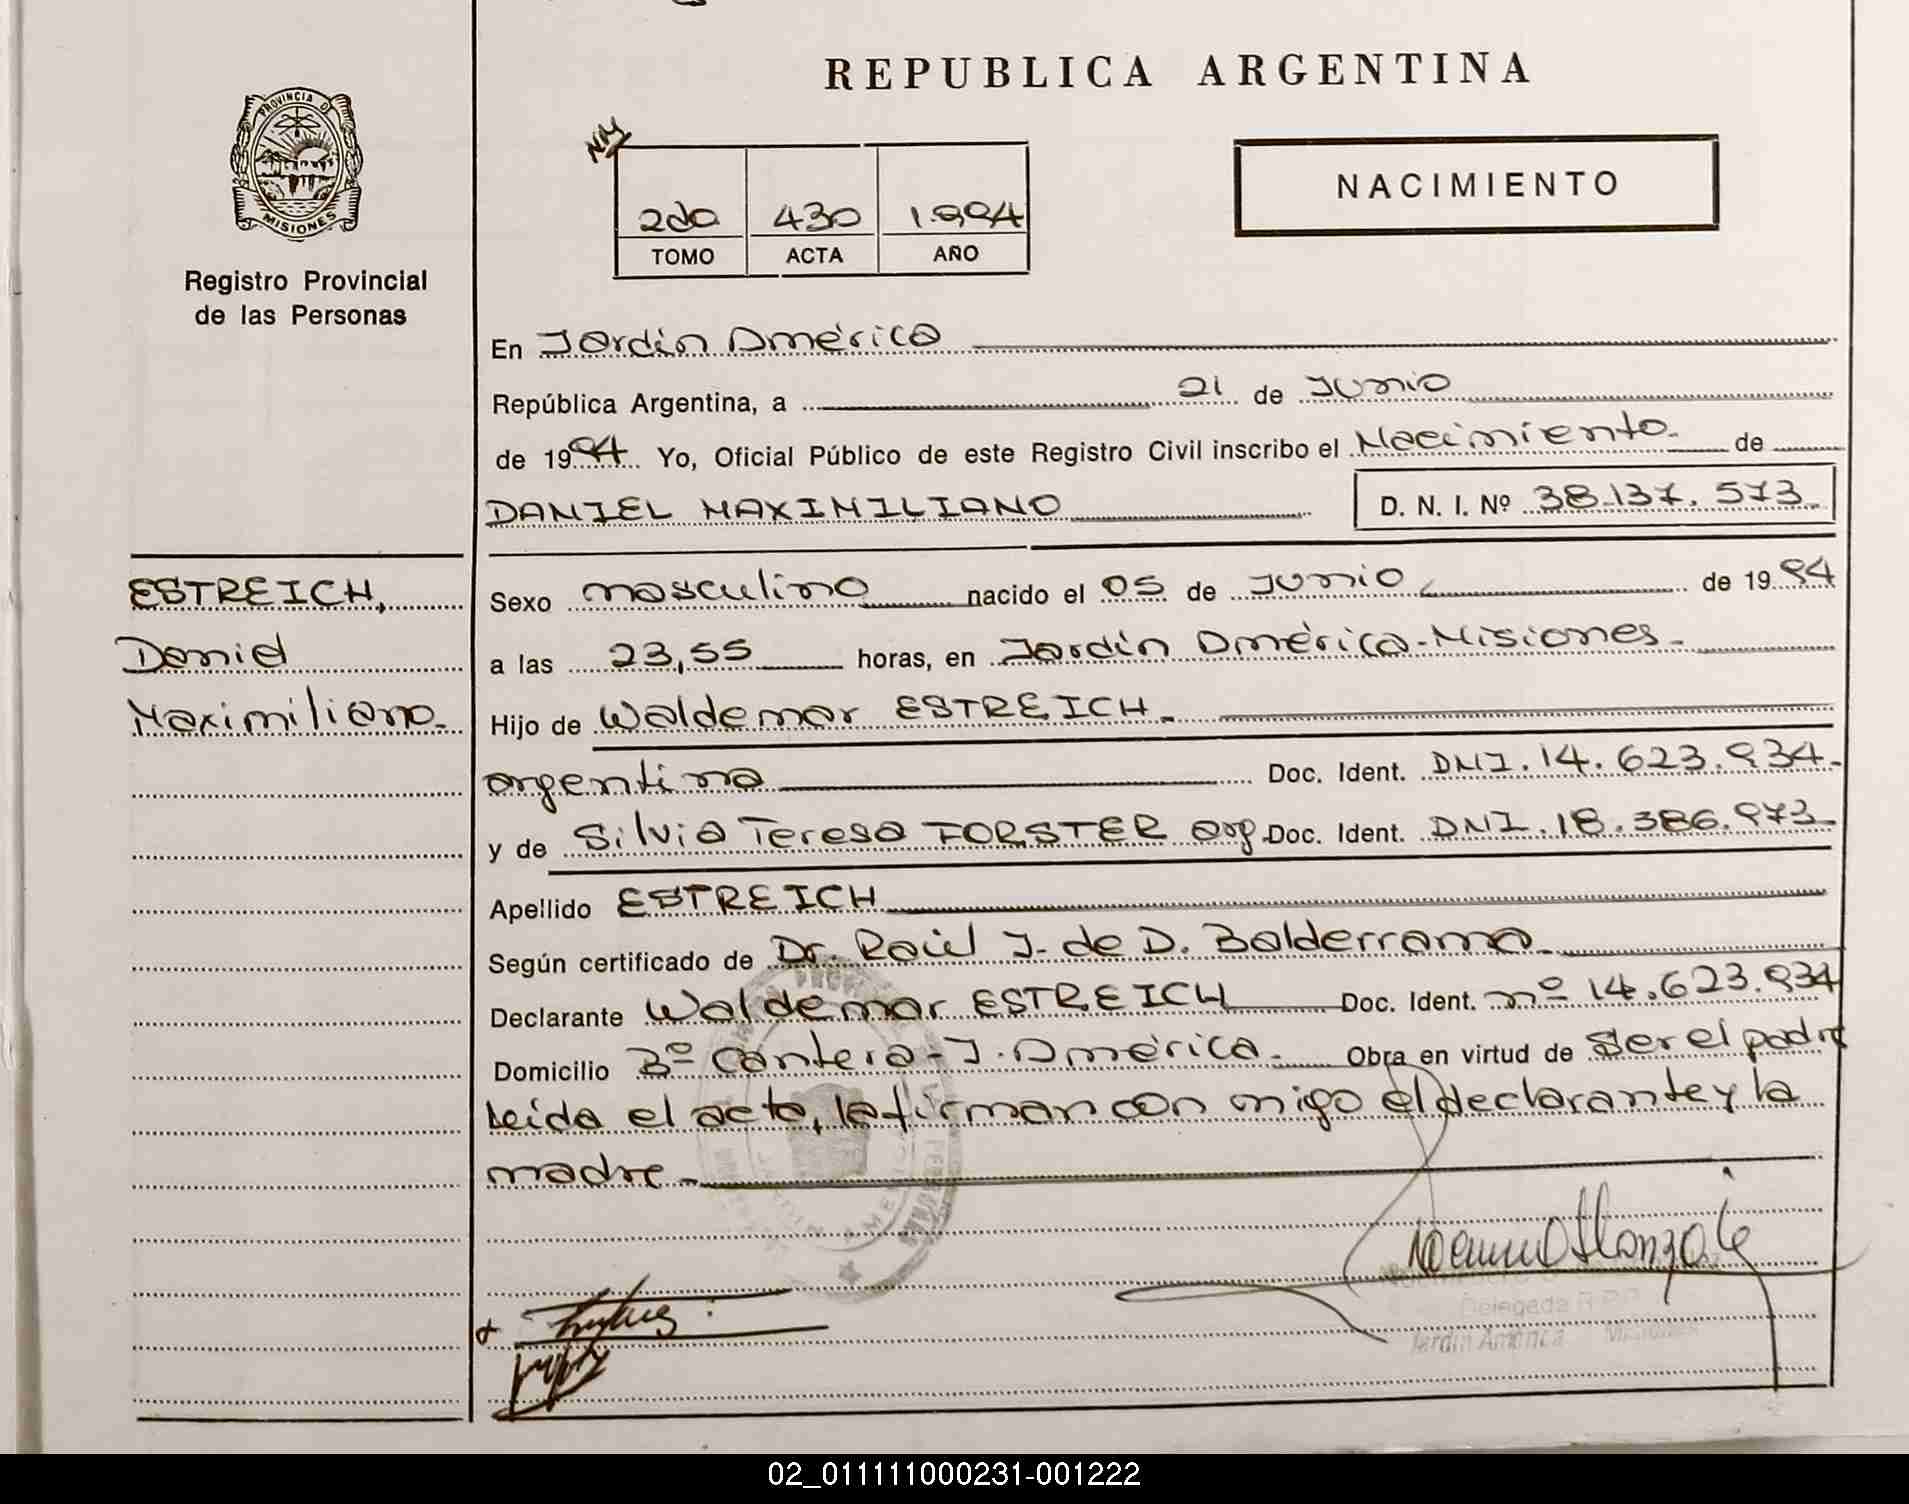 REPUBLICA ARGENTINA
PROVINCIA DE
MISIONES
Registro Provincial
de las Personas
NACIMIENTO
2do 430 1.994
TOMO ACTA AÑO
En Jardín América
República Argentina, a 21 de Junio
de 1994. Yo, Oficial Público de este Registro Civil inscribo el Nacimiento. de
DANIEL MAXIMILIANO D. N. I. Nº 38.137.573.
ESTREICH,
Daniel
Maximiliano.
Sexo masculino nacido el 05 de Junio, de 1994
a las 23,55 horas, en Jardín América-Misiones.
Hijo de Waldemar ESTREICH.
argentina Doc. Ident. DNI.14.623.934.
y de Silvia Teresa FORSTER arg. Doc. Ident. DNI.18.386.973
Apellido ESTREICH
Según certificado de Dr. Raúl J. de D. Balderrama.
Declarante Waldemar ESTREICH Doc. Ident. nº 14.623.934
Domicilio Bº Cantera-J. América. Obra en virtud de Ser el padre
Leída el acta, la firman con migo el declarante y la
madre.
JARDIN AMERICA
Delegada R.P.P.
Jardín América Misiones
02_011111000231-001222